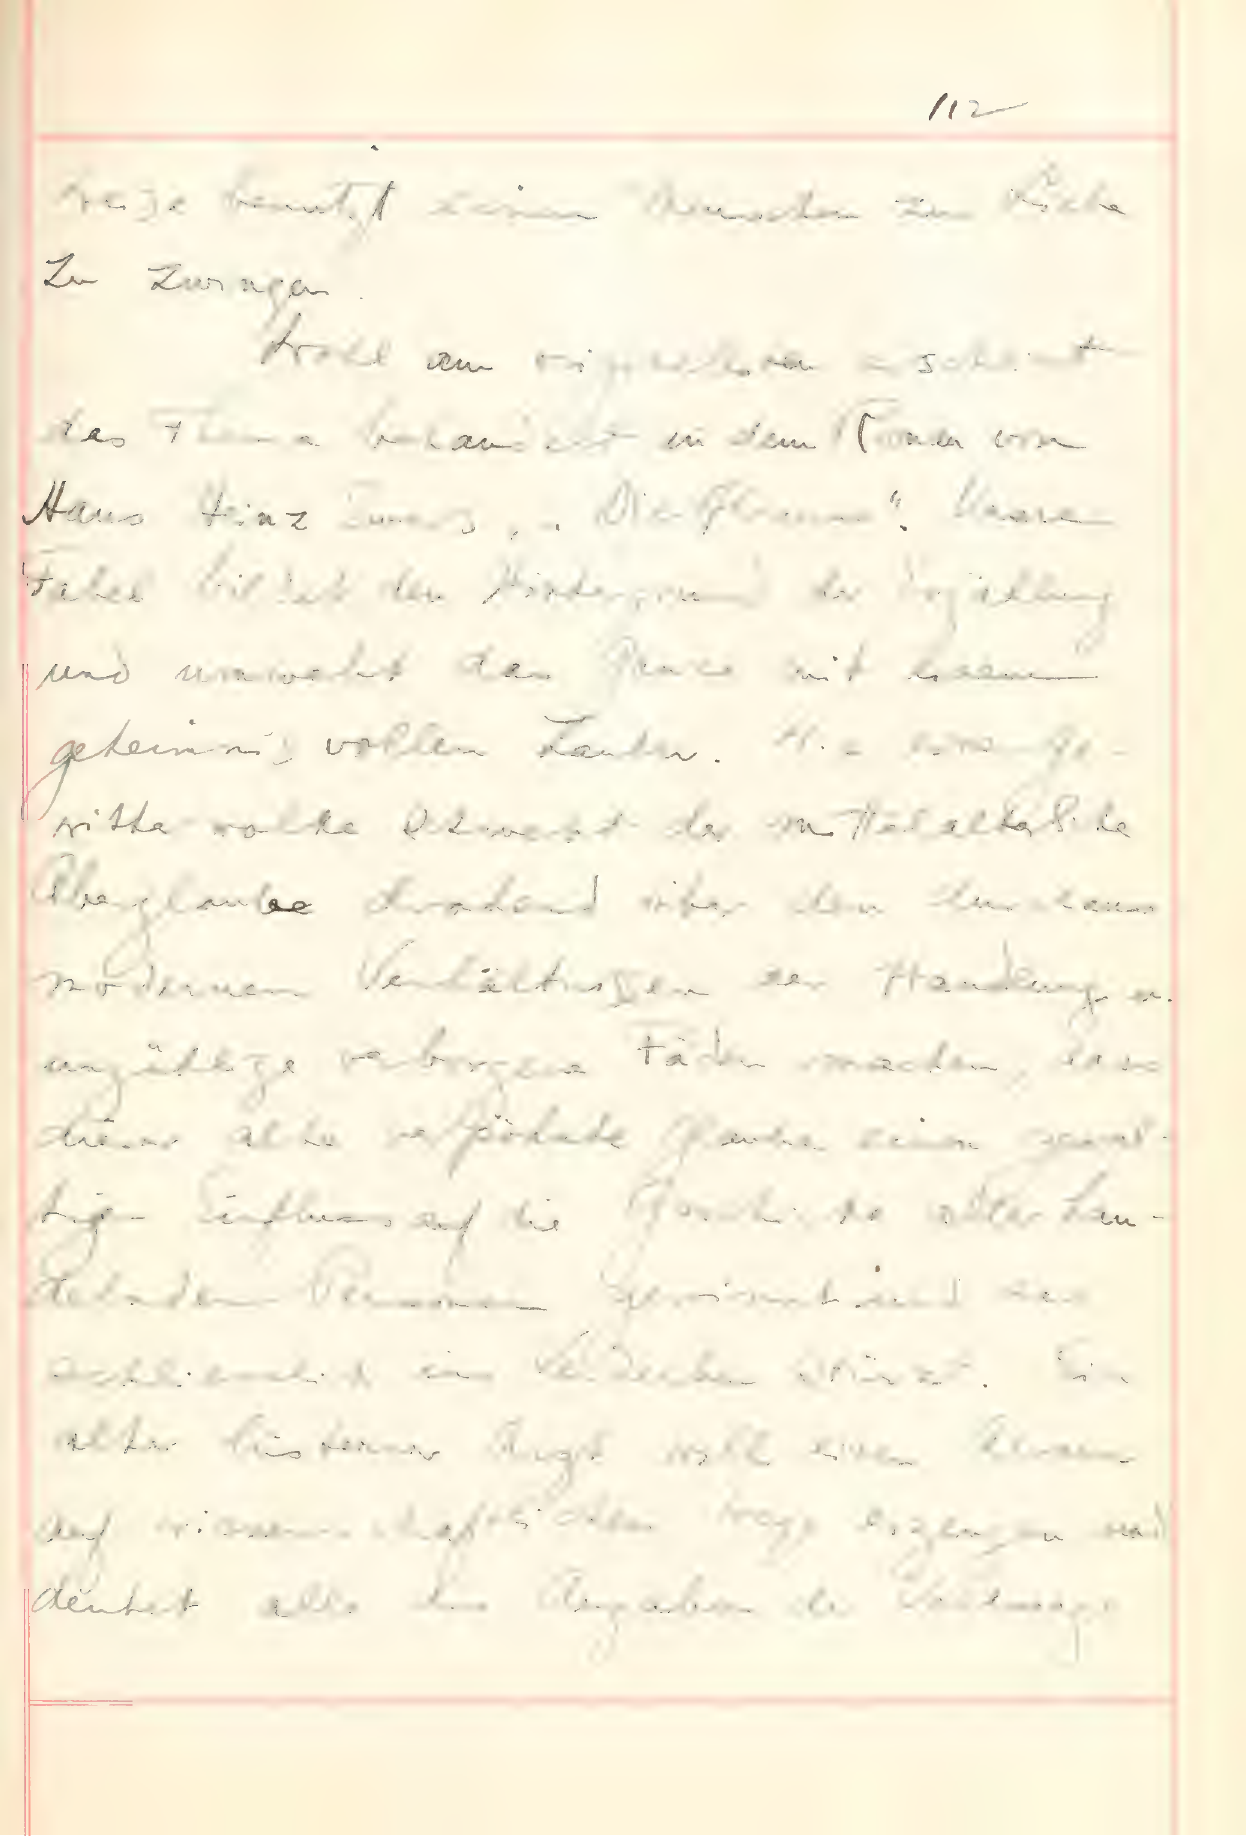 112
weise benutzt einen Menschen zur Liebe
zu zwingen.
Wohl am originellsten erscheint
das Thema behandelt in dem Roman von
Hans Heinz Ewers, „Die Alraune“. Unsere
Fabel bildet den Hintergrund der Erzählung
und umweht das Ganze mit einem
geheimnisvollen Zauber. Wie eine Ge-
witterwolke schwebt der mittelalterliche
Aberglaube drohend über den durchaus
modernen Verhältnissen der Handlung u.
unzählige verborgene Fäden machen, dass
dieser alte Glaube einen gewal-
tigen Einfluss auf die Geschicke aller han-
delnden Personen gewinnt und sie
schliesslich ins Verderben stürzt. Ein
alter Arzt will einen Menschen
auf wissenschaftlichem Wege erzeugen und
deutet alle die Angaben der